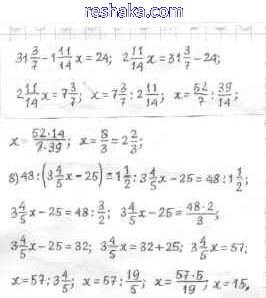 reshaka.com
31 3/7 - 1 11/14 x = 24; 2 11/14 x = 31 3/7 - 24;
2 11/14 x = 7 3/7; x = 7 3/7 : 2 11/14; x = 52/7 : 39/14;
x = 52·14/7·39; x = 8/3 = 2 2/3;
8) 48 : (3 4/5 x - 25) = 1 1/2; 3 4/5 x - 25 = 48 : 1 1/2;
3 4/5 x - 25 = 48 : 3/2; 3 4/5 x - 25 = 48·2/3;
3 4/5 x - 25 = 32; 3 4/5 x = 32 + 25; 3 4/5 x = 57;
x = 57 : 3 4/5; x = 57 : 19/5; x = 57·5/19; x = 15.